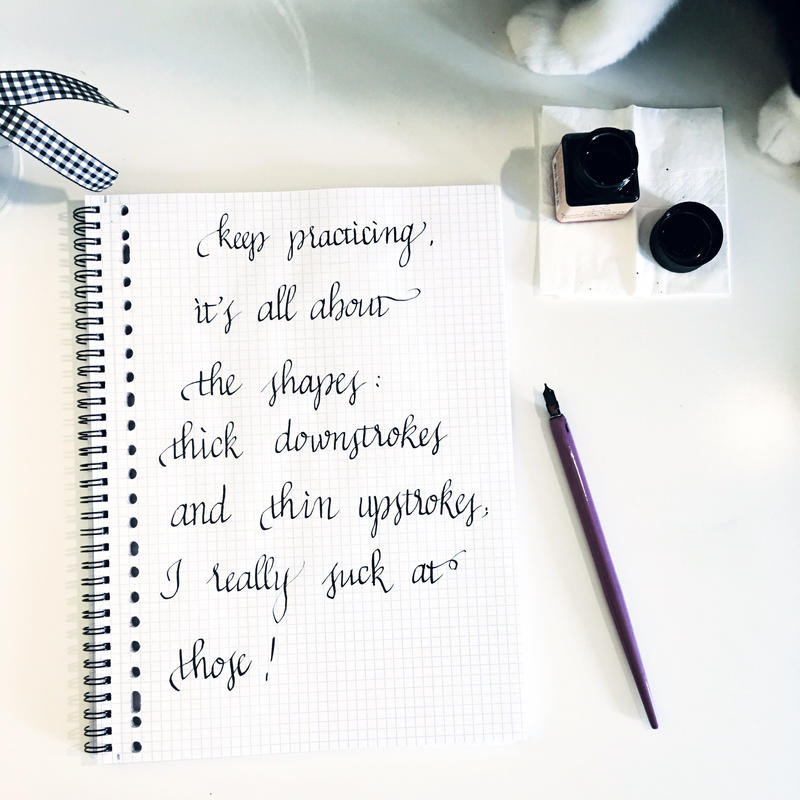 keep practicing,
it's all about
the shapes:
thick downstrokes
and thin upstrokes,
I really suck at
those!